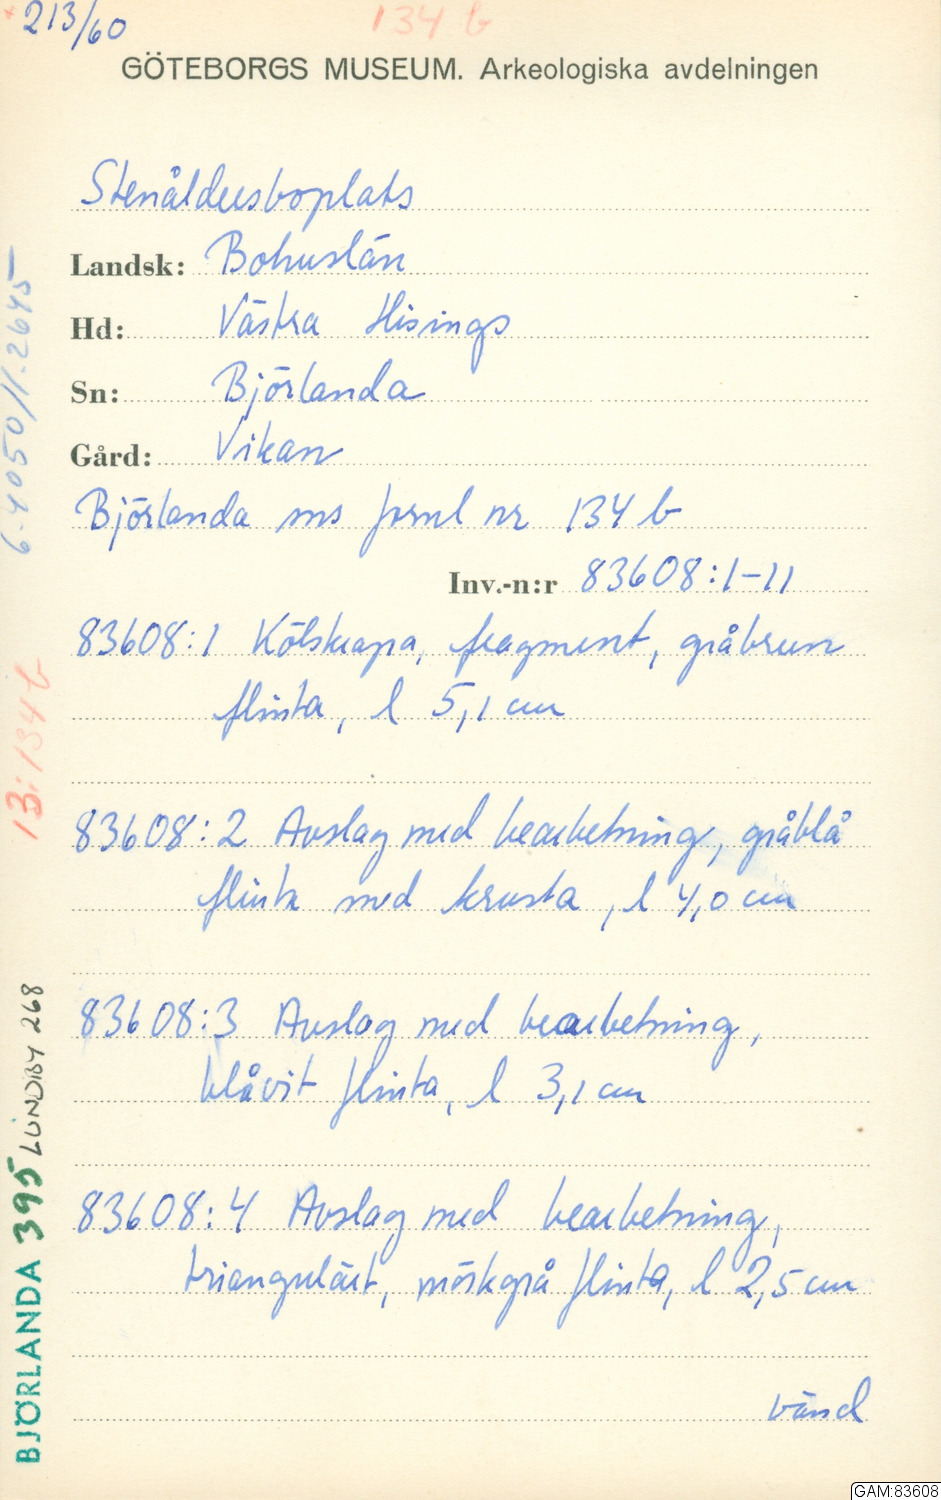 213/60
134 b
GÖTEBORGS MUSEUM. Arkeologiska avdelningen
Stenåldersboplats
Landsk: Bohuslän
Hd: Västra Hisings
Sn: Björlanda
Gård: Vikan
Björlanda sns fornl nr 134 b
Inv.-n:r 83608:1-11
83608:1 Kölskrapa, fragment, gråbrun
flinta, l 5,1 cm
83608:2 Avslag med bearbetning, gråblå
flinta med krusta, l 4,0 cm
83608:3 Avslag med bearbetning,
blåvit flinta, l 3,1 cm
83608:4 Avslag med bearbetning,
triangulärt, mörkgrå flinta, l 2,5 cm
vänd
6.4050/11.2645
13:134 b
BJÖRLANDA 395 LUNDBY 268
GAM:83608